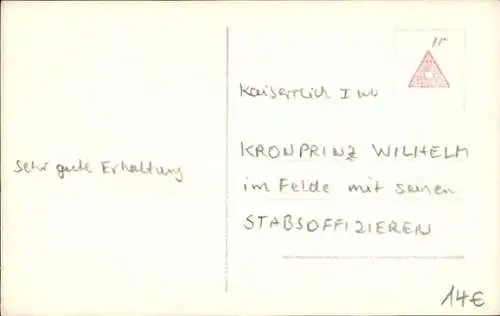 Sehr gute Erhaltung
Kaiserreich I WK
KRONPRINZ WILHELM
im Felde mit seinen
STABSOFFIZIEREN
14€